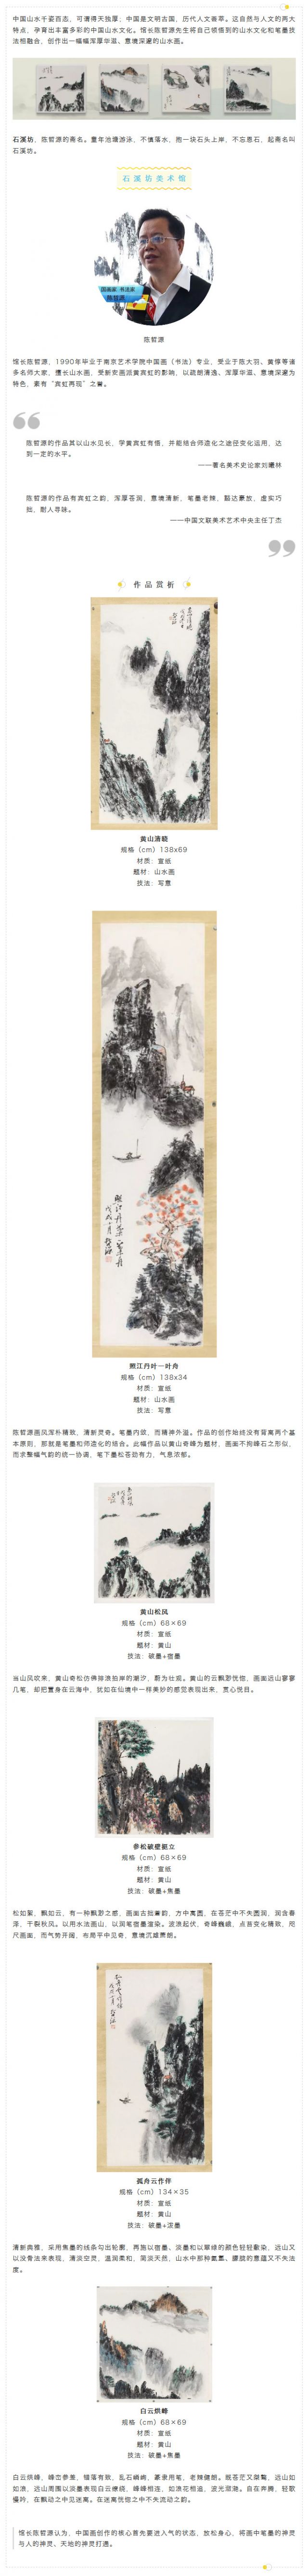 中国山水千姿百态，可谓得天独厚；中国是文明古国，历代人文荟萃。这自然与人文的两大
特点，孕育出丰富多彩的中国山水文化。馆长陈哲源先生将自己领悟到的山水文化和笔墨技
法相融合，创作出一幅幅浑厚华滋、意境深邃的山水画。
石溪坊，陈哲源的斋名。童年池塘游泳，不慎落水，抱一块石头上岸，不忘恩石，起斋名叫
石溪坊。
石溪坊美术馆
国画家 书法家
陈哲源
陈哲源
馆长陈哲源，1990年毕业于南京艺术学院中国画（书法）专业，受业于陈大羽、黄惇等诸
多名师大家，擅长山水画，受新安画派黄宾虹的影响，以疏朗清逸、浑厚华滋、意境深邃为
特色，素有“宾虹再现”之誉。
陈哲源的作品其以山水见长，学黄宾虹有悟，并能结合师造化之途径变化运用，达
到一定的水平。
——著名美术史论家刘曦林
陈哲源的作品有宾虹之韵，浑厚苍润，意境清新，笔墨老辣，豁达豪放，虚实巧
拙，耐人寻味。
——中国文联美术艺术中央主任丁杰
作品赏析
黄山清晓
规格（cm）138x69
材质：宣纸
题材：山水画
技法：写意
照江丹叶一叶舟
规格（cm）138x34
材质：宣纸
题材：山水画
技法：写意
陈哲源画风浑朴精致，清新灵奇。笔墨内敛，而精神外溢。作品的创作始终没有背离两个基
本原则，那就是笔墨和师造化的结合。此幅作品以黄山奇峰为题材，画面不拘峰石之形似，
而求整幅气韵的统一协调，笔下墨松苍劲有力，气息浓郁。
黄山松风
规格（cm）68×69
材质：宣纸
题材：黄山
技法：破墨+宿墨
当山风吹来，黄山奇松仿佛排浪拍岸的潮汐，蔚为壮观。黄山的云飘渺恍惚，画面远山寥寥
几笔，却把置身在云海中，犹如在仙境中一样美妙的感觉表现出来，赏心悦目。
参松破壁挺立
规格（cm）68×69
材质：宣纸
题材：黄山
技法：破墨+焦墨
松如絮，飘如云，有一种飘渺之感，画面古拙兼韵，方中寓圆，在苍茫中不失圆润，润含春
泽，干裂秋风。以用水法画山，以润笔宿墨渲染。波浪起伏，奇峰巍峨，点苔变化精致，咫
尺画面，而气势开阔，布局平中见奇，意境沉雄萧朗。
孤舟云作伴
规格（cm）134×35
材质：宣纸
题材：黄山
技法：破墨+泼墨
清新典雅，采用焦墨的线条勾出轮廓，再施以宿墨、淡墨和以翠绿的颜色轻轻敷染，远山又
以没骨法来表现，清淡空灵，温润柔和，简淡天然，山水中那种氤氲、朦胧的意蕴又不失法
度。
白云烘峰
规格（cm）68×69
材质：宣纸
题材：黄山
技法：破墨+焦墨
白云烘峰，峰峦参差，错落有致，乱石嶙峋，篆隶用笔，老辣健朗。既苍茫又桀骜，远山如
如浪，远山周围以淡墨表现白云缭绕，峰峰相连，如浪花相追，波光潋滟。自在奔腾，轻歌
慢吟，在飘动之中见迷离，在迷离恍惚之中不失流动之韵。
馆长陈哲源认为，中国画创作的核心首先要进入气的状态，放松身心，将画中笔墨的神灵
与人的神灵、天地的神灵打通。